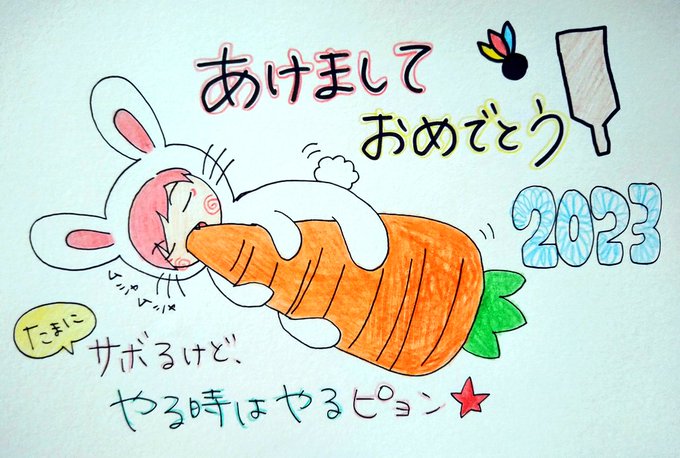 あけまして
おめでとう
2023
ムシャ
ムシャ
たまに
サボるけど、
やる時はやるピョン